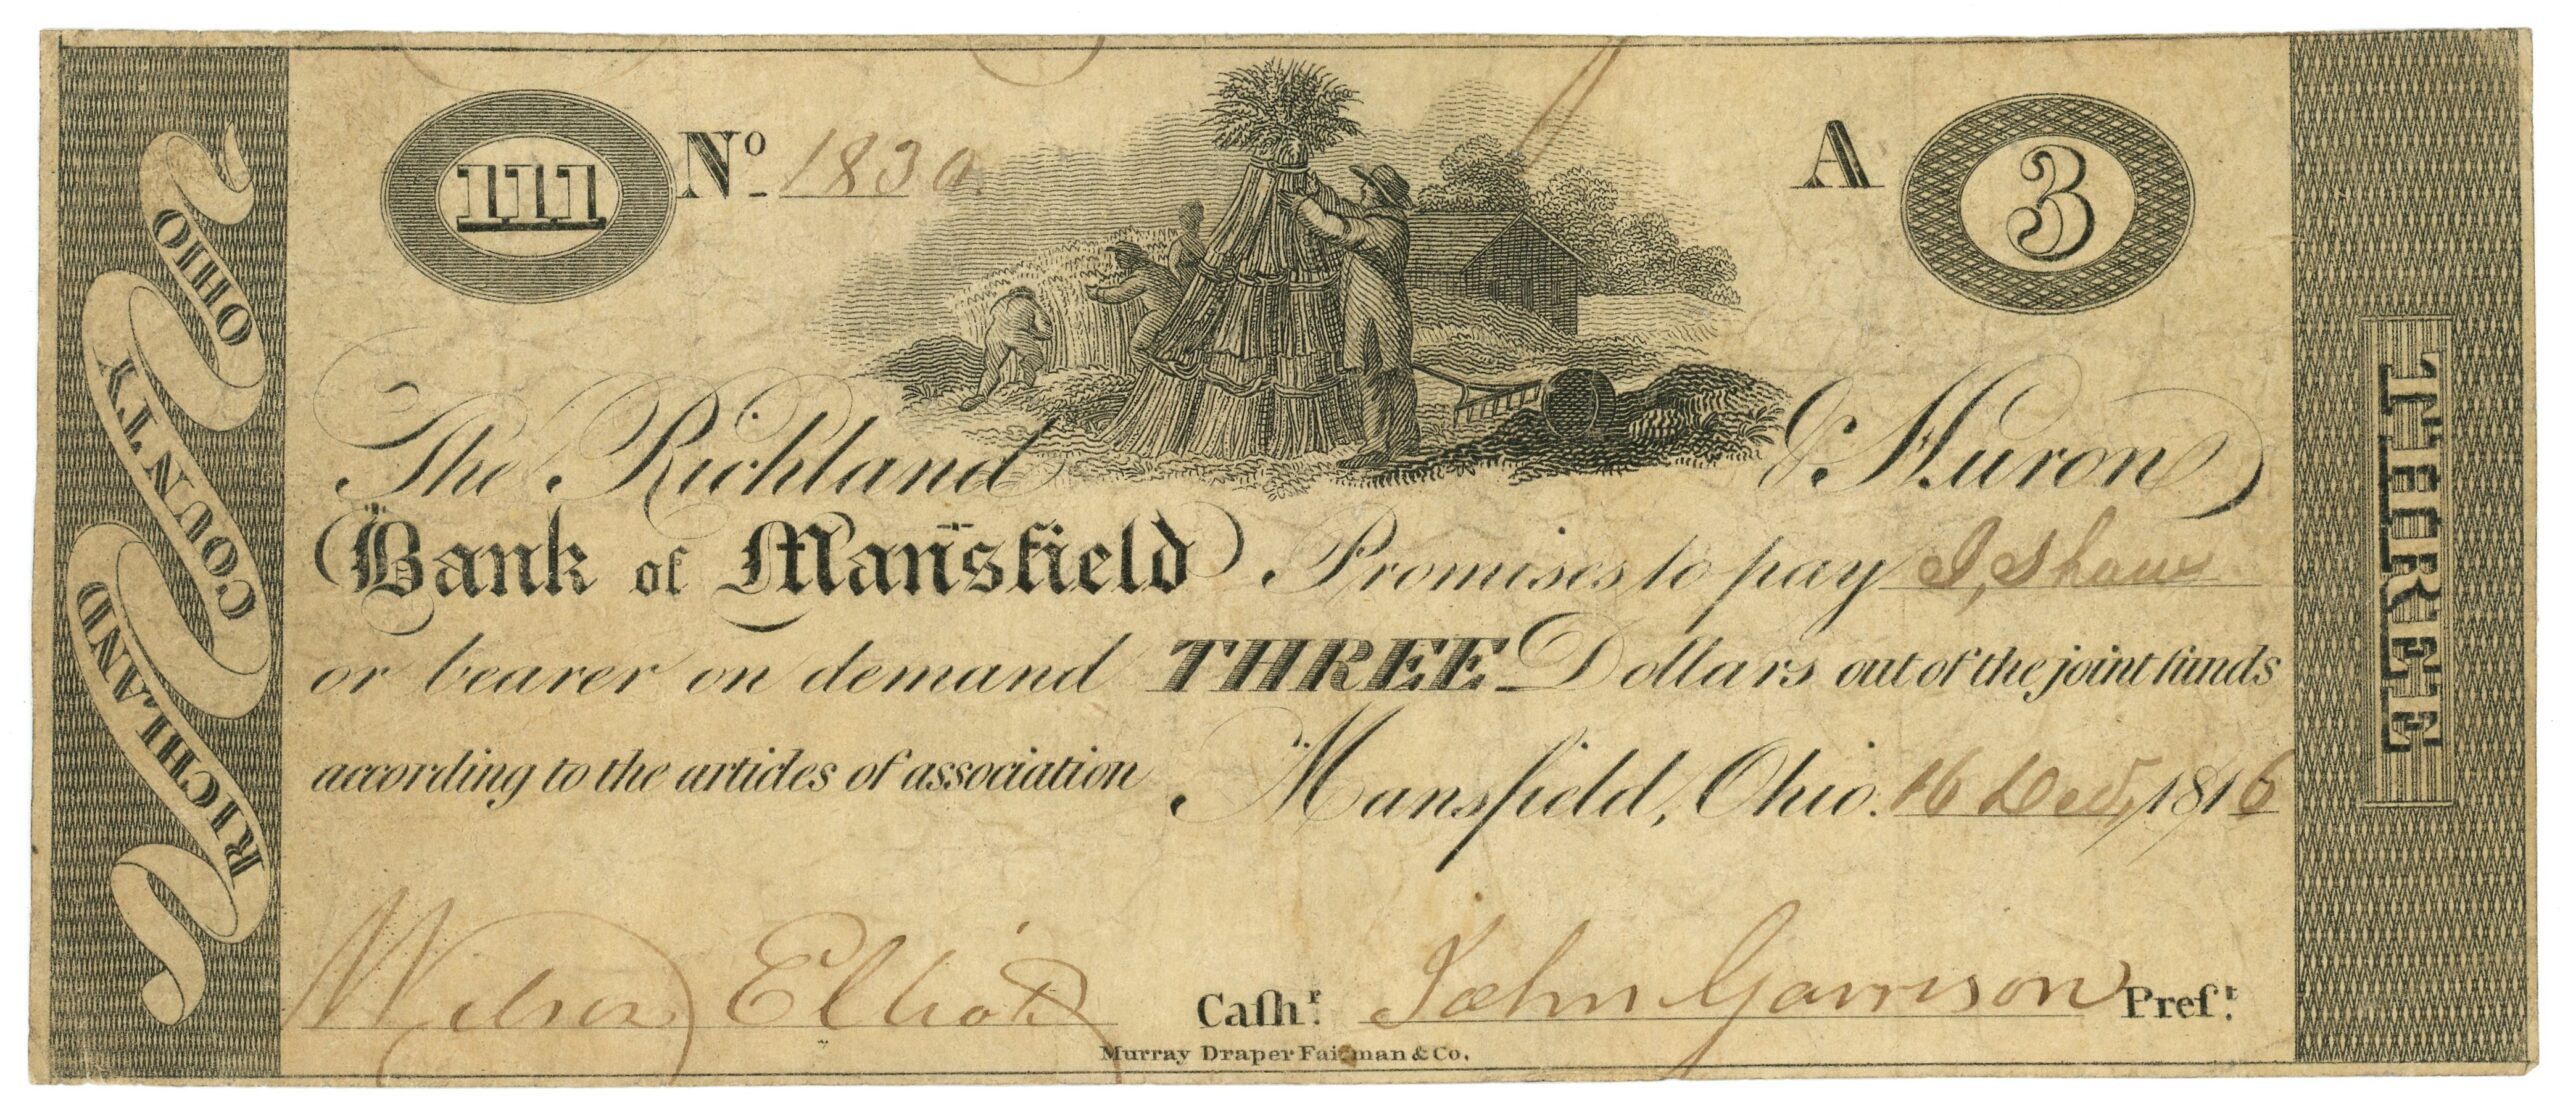 RICHLAND COUNTY OHIO
111 Nº 1830. A 3
The Richland & Huron
Bank of Mansfield Promises to pay I, Shaw
or bearer on demand THREE Dollars out of the joint funds
according to the articles of association Mansfield, Ohio. 16 Decr, 1816
Wilson Elliott Caſhr. John Garrison Preſt.
Murray Draper Fairman & Co.
THREE